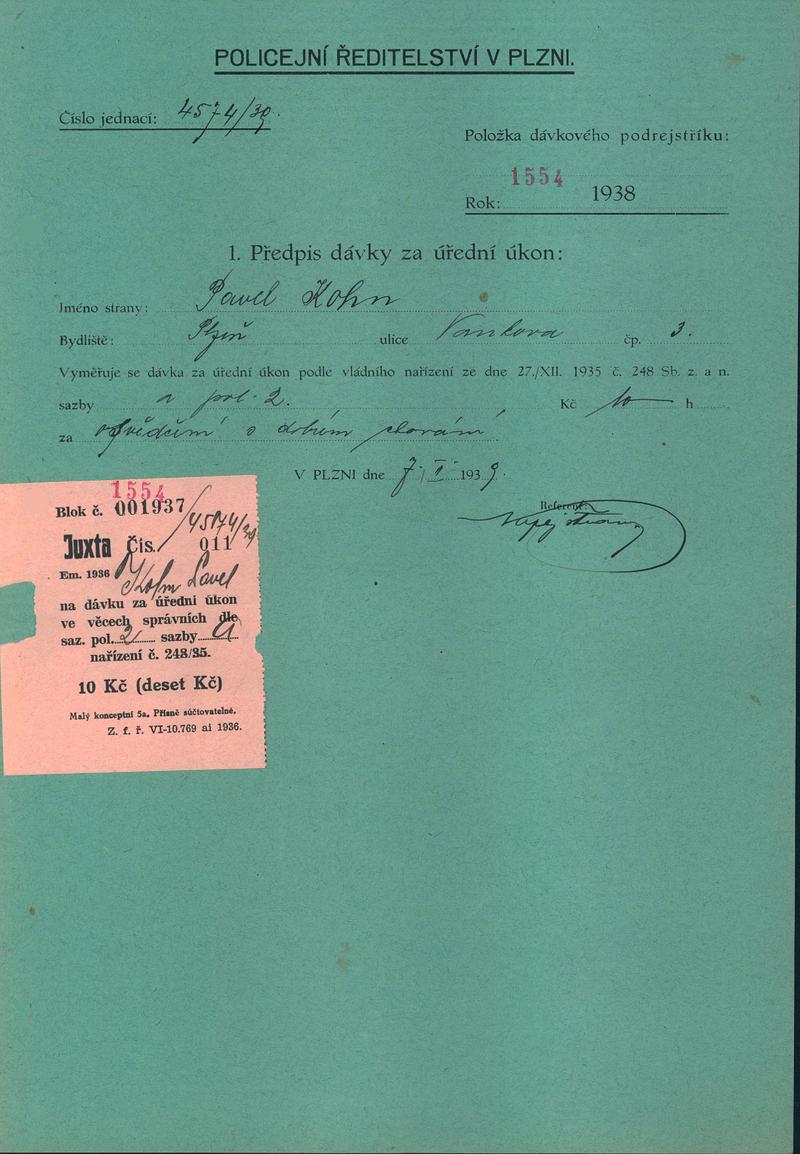 POLICEJNÍ ŘEDITELSTVÍ V PLZNI.
Číslo jednací: 4574/39.
Položka dávkového podrejstříku:
1554
Rok: 1938
1. Předpis dávky za úřední úkon:
Jméno strany: Pavel Kohn
Bydliště: Plzeň ulice čp. 3.
Vyměřuje se dávka za úřední úkon podle vládního nařízení ze dne 27./XII. 1935 č. 248 Sb. z. a n.
sazby a pol. 2. Kč 10 h
za osvědčení o dobrém chování
V PLZNI dne 7. 1939.
Referent:
1554
Blok č. 001937
4574/39
Juxta Čís. 011
Em. 1936 Kohn Pavel
na dávku za úřední úkon
ve věcech správních dle
saz. pol. 2 sazby a
nařízení č. 248/35.
10 Kč (deset Kč)
Malý konceptní 5a. Přísně súčtovatelné.
Z. f. ř. VI-10.769 ai 1936.